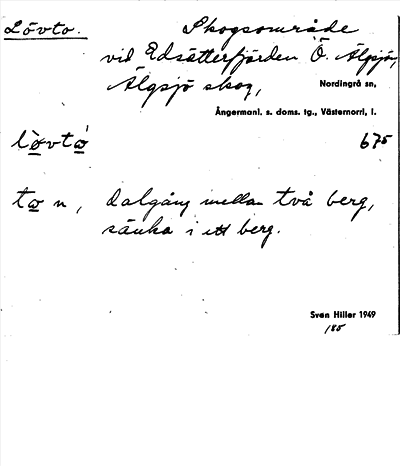 Lövto. Skogsområde
vid Edsätterfjärden Ö. Älgsjön,
Älgsjö skog, Nordingrå sn,
Ångermanl. s. doms. tg., Västernorrl, l.
675
n, dalgång mellan två berg,
sänka i ett berg.
Sven Hiller 1949
185